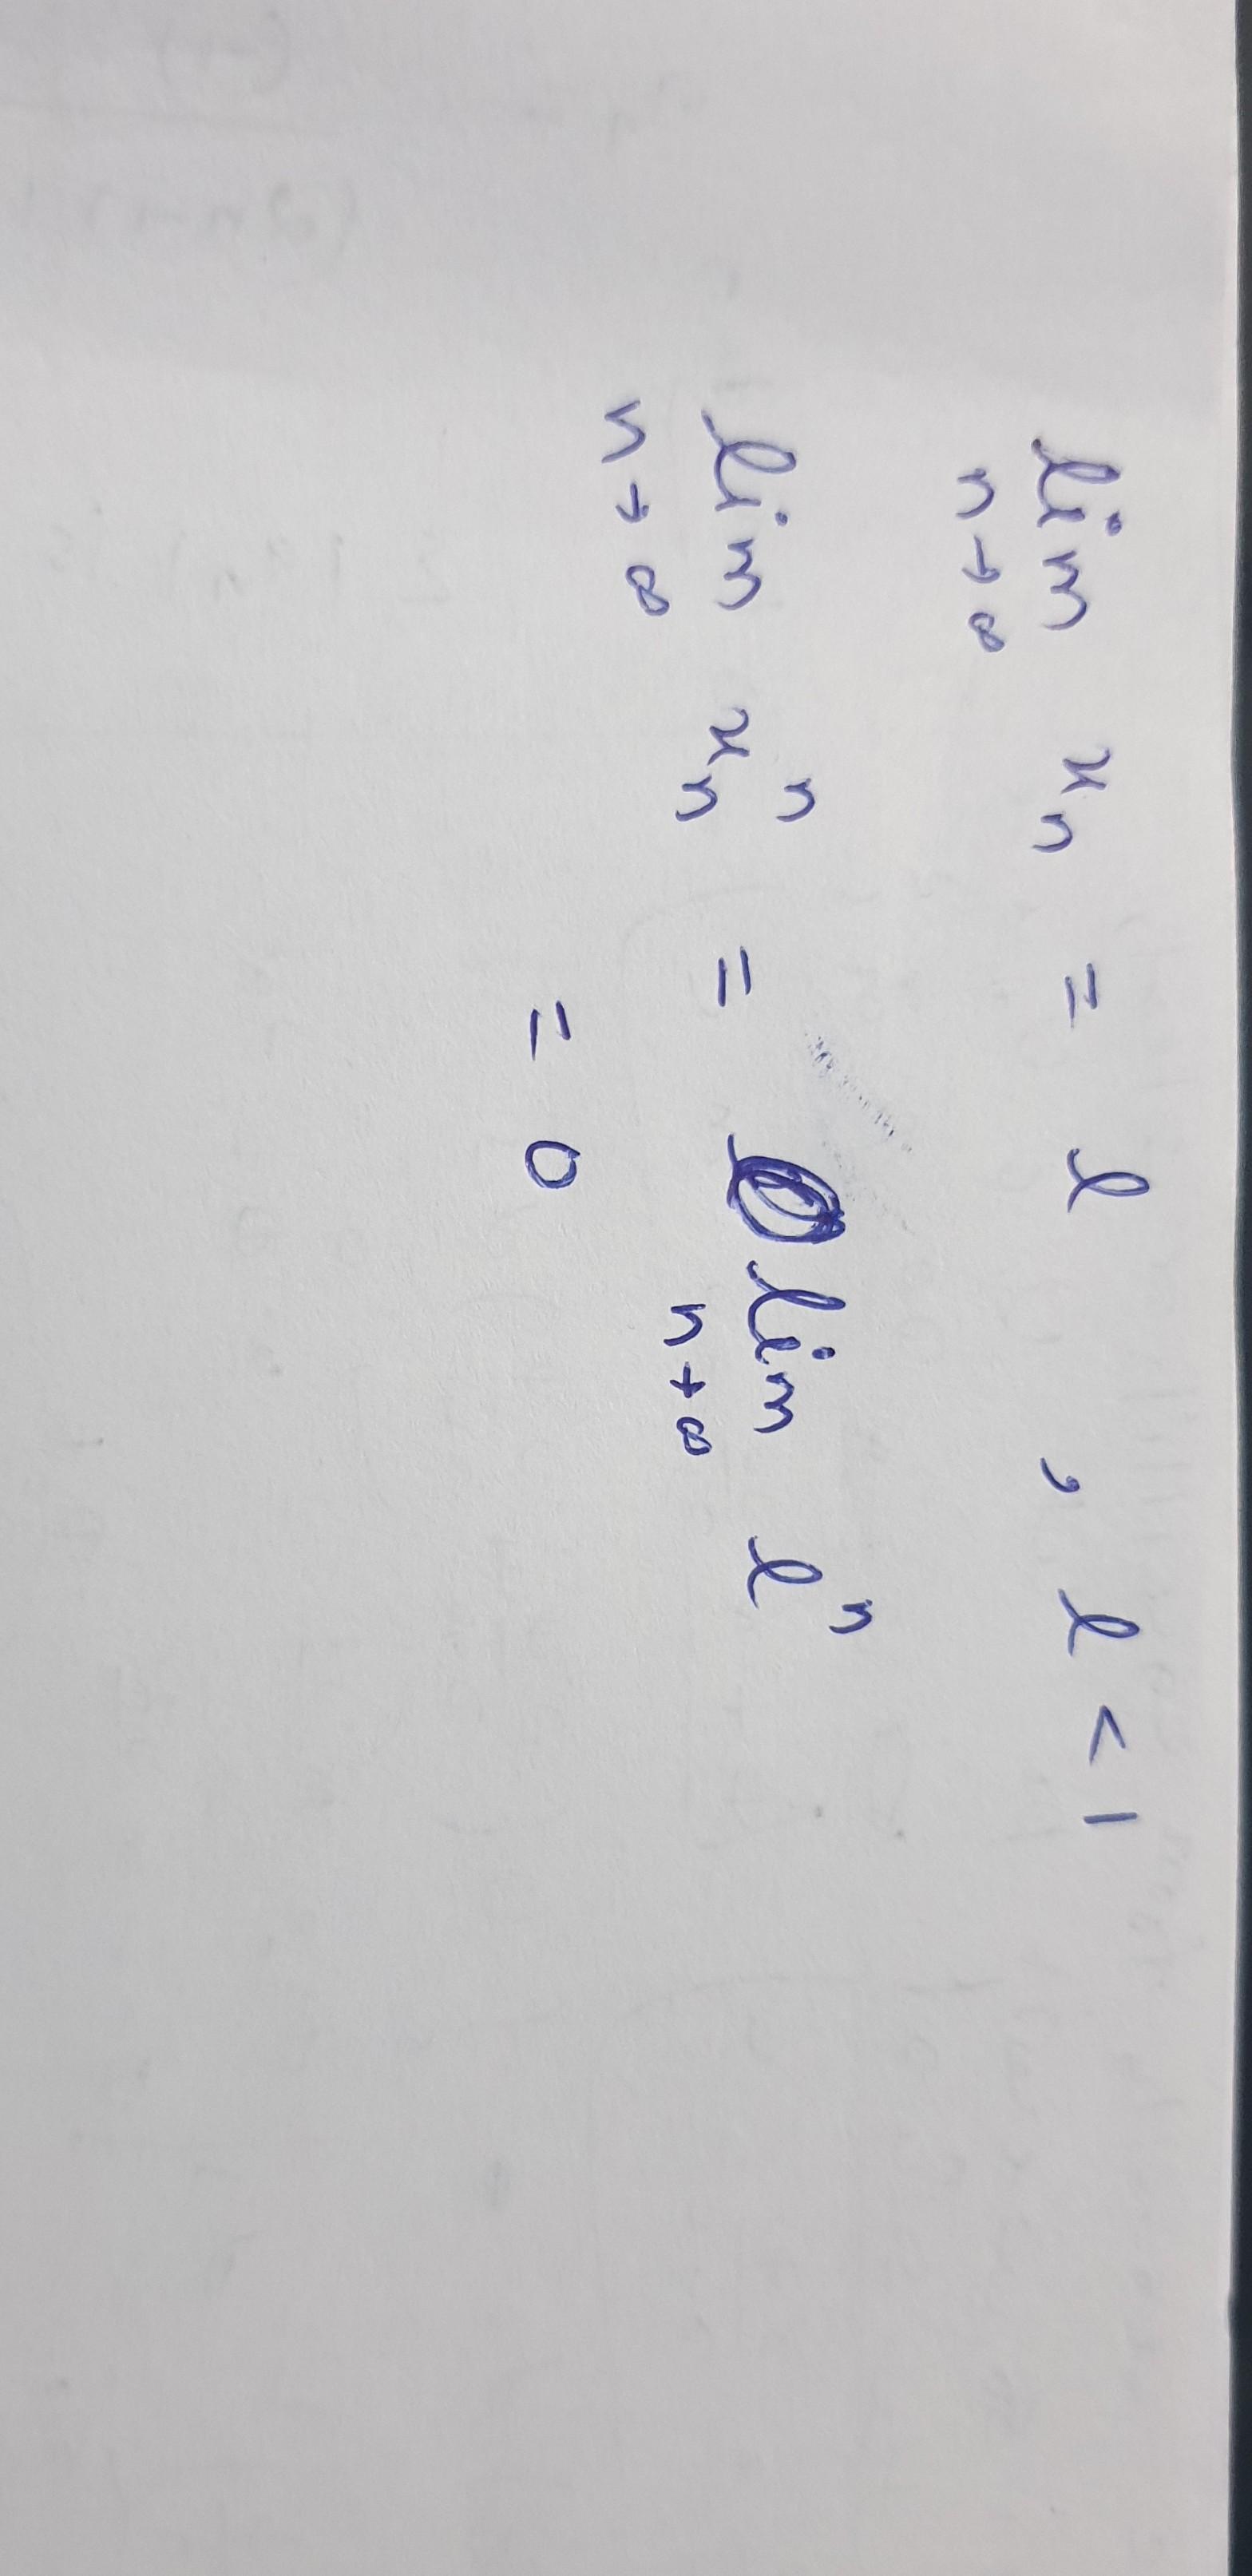 lim n→∞ x_n = l , l < 1
lim n→∞ x_n^n = lim n→∞ l^n
= 0